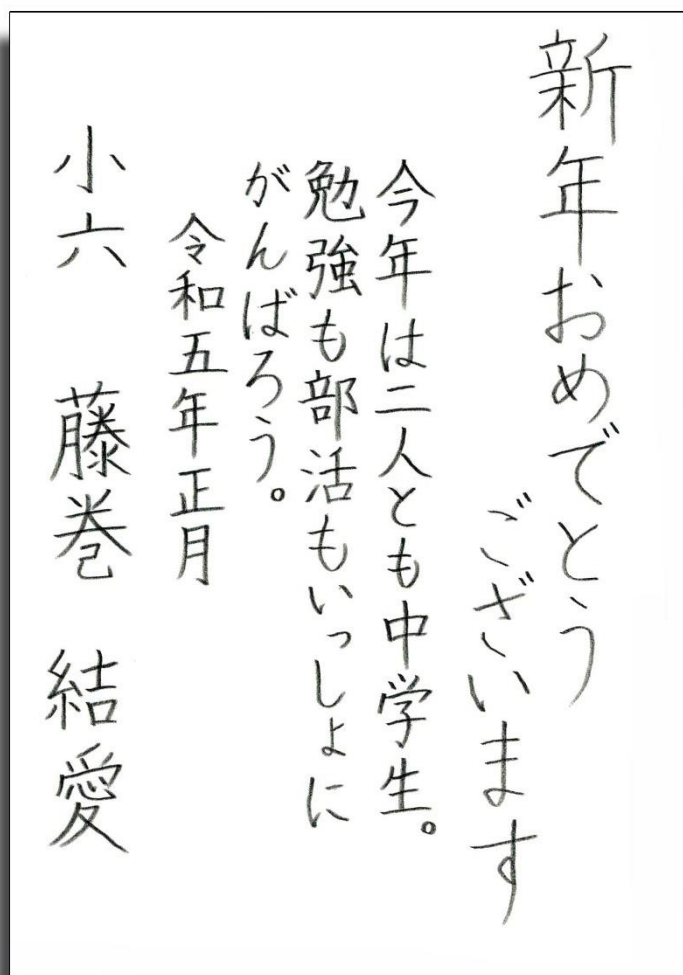 新年おめでとう
ございます
今年は二人とも中学生。
勉強も部活もいっしょに
がんばろう。
令和五年正月
小六 藤巻 結愛